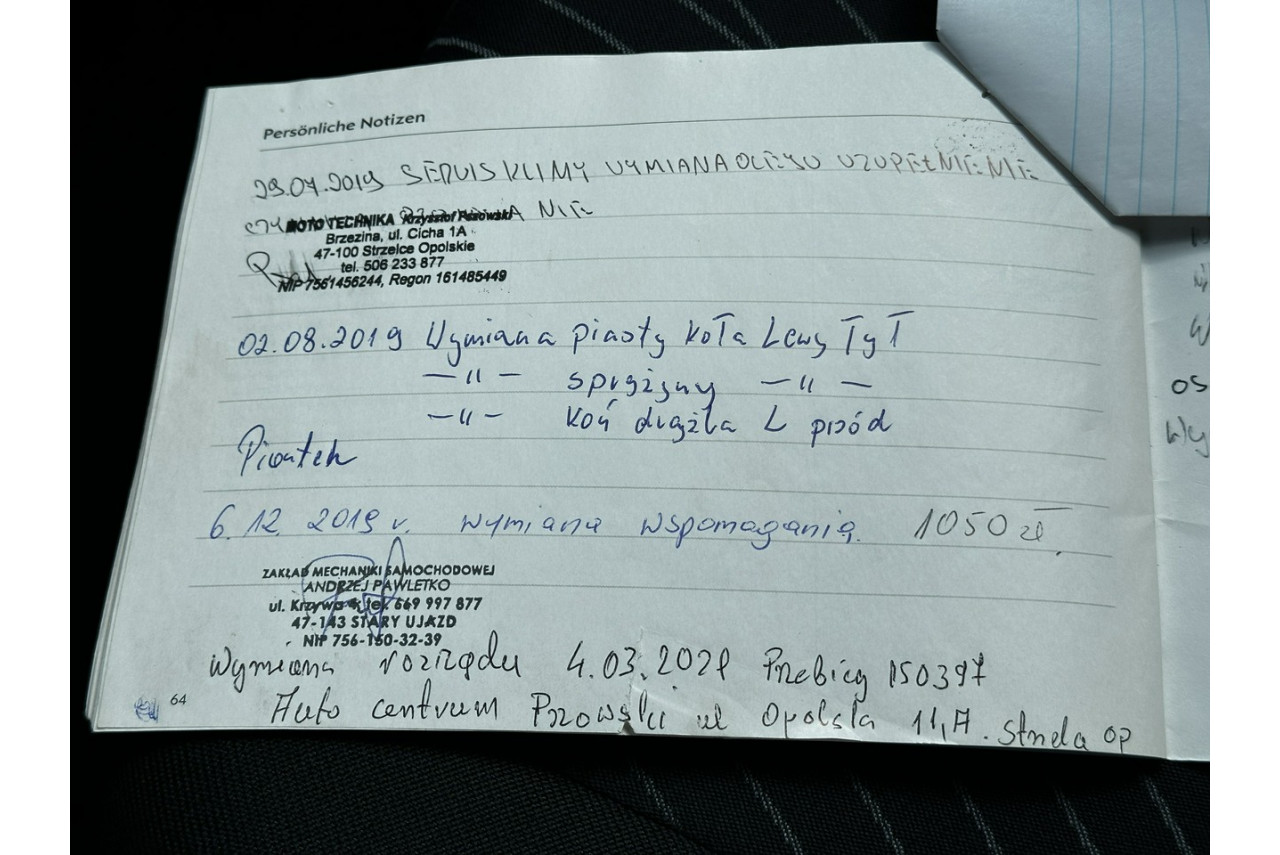 Persönliche Notizen
29.07.2019 SERVIS KLIMY WYMIANA OLEJU UZUPEŁNIENIE
NIE
MOTO TECHNIKA Krzysztof
Brzezina, ul. Cicha 1A
47-100 Strzelce Opolskie
tel. 506 233 877
NIP 7561456244, Regon 161485449
02.08.2019 Wymiana piasty koła Lewy Tył
—"— sprężyny —"—
—"— koń drążka L przód
Piontek
6.12.2019 r. wymiana wspomagania. 1050 zł.
ZAKŁAD MECHANIKI SAMOCHODOWEJ
ANDRZEJ PAWLETKO
ul. Krzywa 4, tel. 669 997 877
47-143 STARY UJAZD
NIP 756-150-32-39
Wymiana rozrządu 4.03.2021 Przebieg 150397
Auto centrum ul Opolska 11,A. op
64